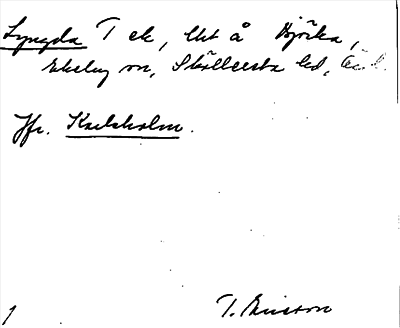 Lyngda T ek, litet å Björka,
Ekeby sn, Sköllersta hd,
Jfr. Karlsholm.
T. Ericson